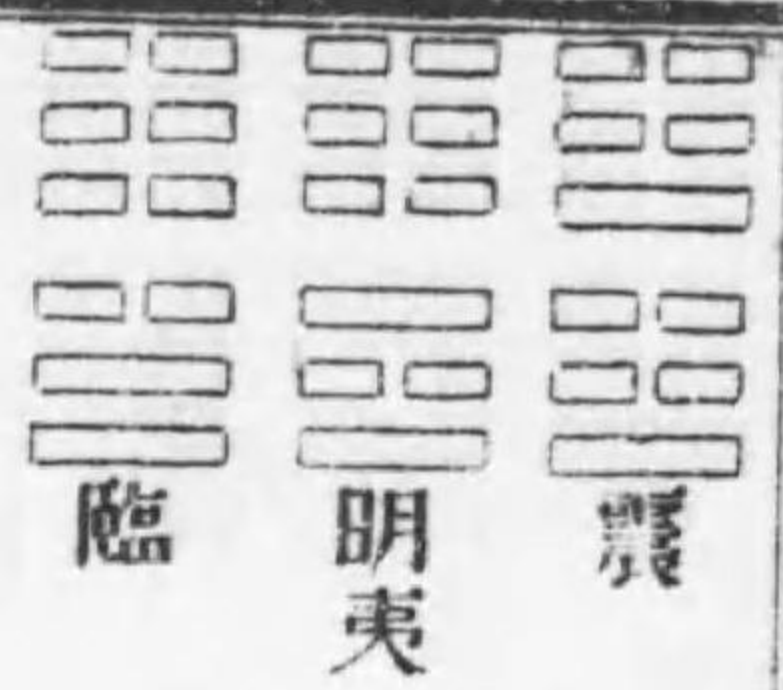 震
明夷
臨